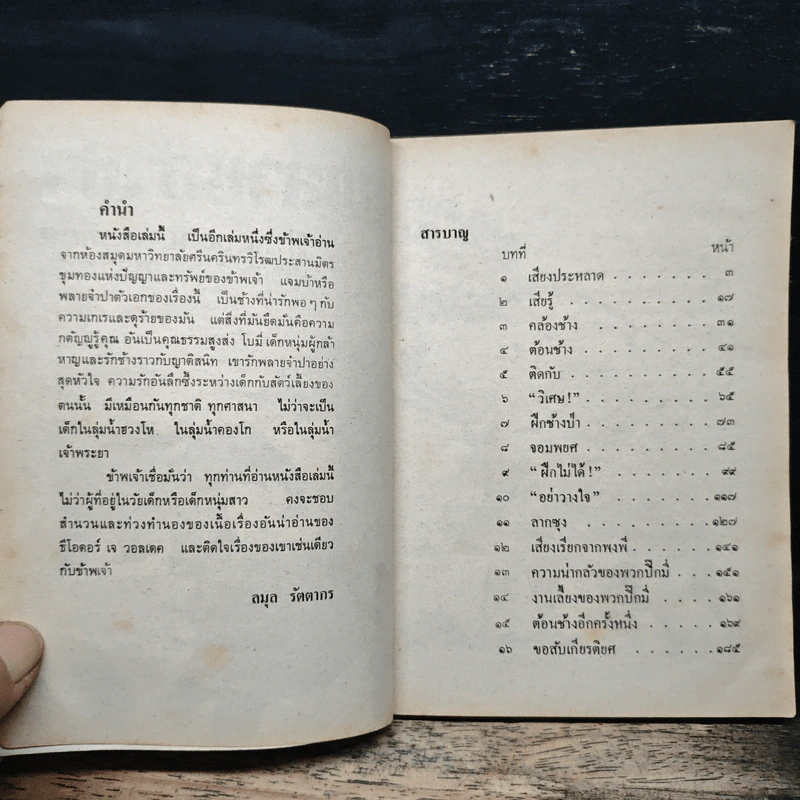 คำนำ
หนังสือเล่มนี้ เป็นอีกเล่มหนึ่งซึ่งข้าพเจ้าอ่าน
จากห้องสมุดมหาวิทยาลัยศรีนครินทรวิโรฒประสานมิตร
ขุมทองแห่งปัญญาและทรัพย์ของข้าพเจ้า แจมบ้าหรือ
พลายจำปาตัวเอกของเรื่องนี้ เป็นช้างที่น่ารักพอๆกับ
ความเกเรและดุร้ายของมัน แต่สิ่งที่มันยึดมั่นคือความ
กตัญญูรู้คุณ อันเป็นคุณธรรมสูงส่ง โบมี่ เด็กหนุ่มผู้กล้า
หาญและรักช้างราวกับญาติสนิท เขารักพลายจำปาอย่าง
สุดหัวใจ ความรักอันลึกซึ้งระหว่างเด็กกับสัตว์เลี้ยงของ
ตนนั้น มีเหมือนกันทุกชาติ ทุกศาสนา ไม่ว่าจะเป็น
เด็กในลุ่มน้ำฮวงโห ในลุ่มน้ำคองโก หรือในลุ่มน้ำ
เจ้าพระยา
ข้าพเจ้าเชื่อมั่นว่า ทุกท่านที่อ่านหนังสือเล่มนี้
ไม่ว่าผู้ที่อยู่ในวัยเด็กหรือเด็กหนุ่มสาว คงจะชอบ
สำนวนและท่วงทำนองของเนื้อเรื่องอันน่าอ่านของ
ธีโอดอร์ เจ วอลเดค และติดใจเรื่องของเขาเช่นเดียว
กับข้าพเจ้า
ลมุล รัตตากร
สารบาญ
บทที่ หน้า
๑ เสียงประหลาด . . . . . . . ๓
๒ เสียรู้ . . . . . . . . . ๑๗
๓ คล้องช้าง . . . . . . . . ๓๑
๔ ต้อนช้าง . . . . . . . . ๔๑
๕ ติดกับ . . . . . . . . . ๕๕
๖ “วิเศษ!” . . . . . . . . ๖๕
๗ ฝึกช้างป่า . . . . . . . . ๗๓
๘ จอมพยศ . . . . . . . . ๘๕
๙ “ฝึกไม่ได้!” . . . . . . . ๙๙
๑๐ “อย่าวางใจ” . . . . . . . ๑๑๗
๑๑ ลากซุง . . . . . . . . ๑๒๗
๑๒ เสียงเรียกจากพงพี . . . . . . ๑๔๑
๑๓ ความน่ากลัวของพวกปิ๊กมี่ . . . . ๑๕๑
๑๔ งานเลี้ยงของพวกปิ๊กมี่ . . . . . ๑๖๑
๑๕ ต้อนช้างอีกครั้งหนึ่ง . . . . . ๑๖๙
๑๖ ขอสับเกียรติยศ . . . . . . ๑๘๕